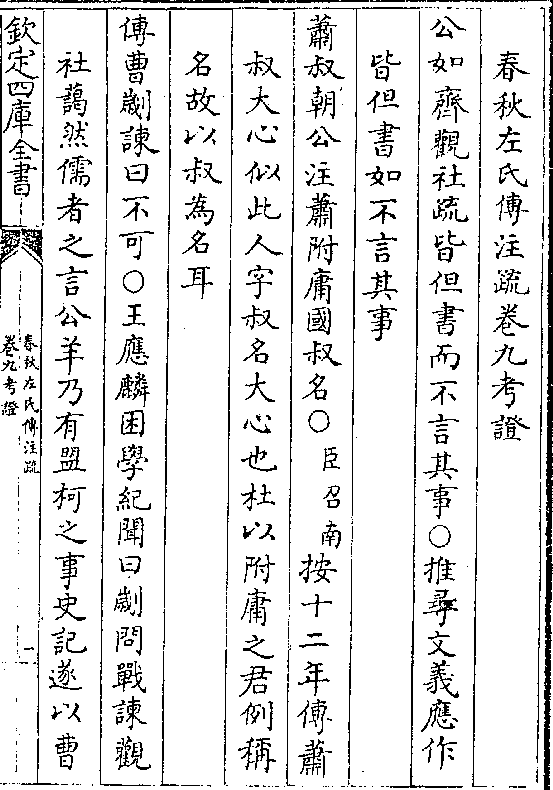 春秋左氏傳注疏卷九考證
公如齊觀社疏皆但書而不言其事○推尋文義應作
皆但書如不言其事
蕭叔朝公注蕭附庸國叔名○臣召南按十二年傳蕭
叔大心似此人字叔名大心也杜以附庸之君例稱
名故以叔為名耳
傳曹劌諫曰不可○王應麟困學紀聞曰劌問戰諫觀
社藹然儒者之言公羊乃有盟柯之事史記遂以曹
欽定四庫全書
春秋左氏傳注疏
卷九考證
一